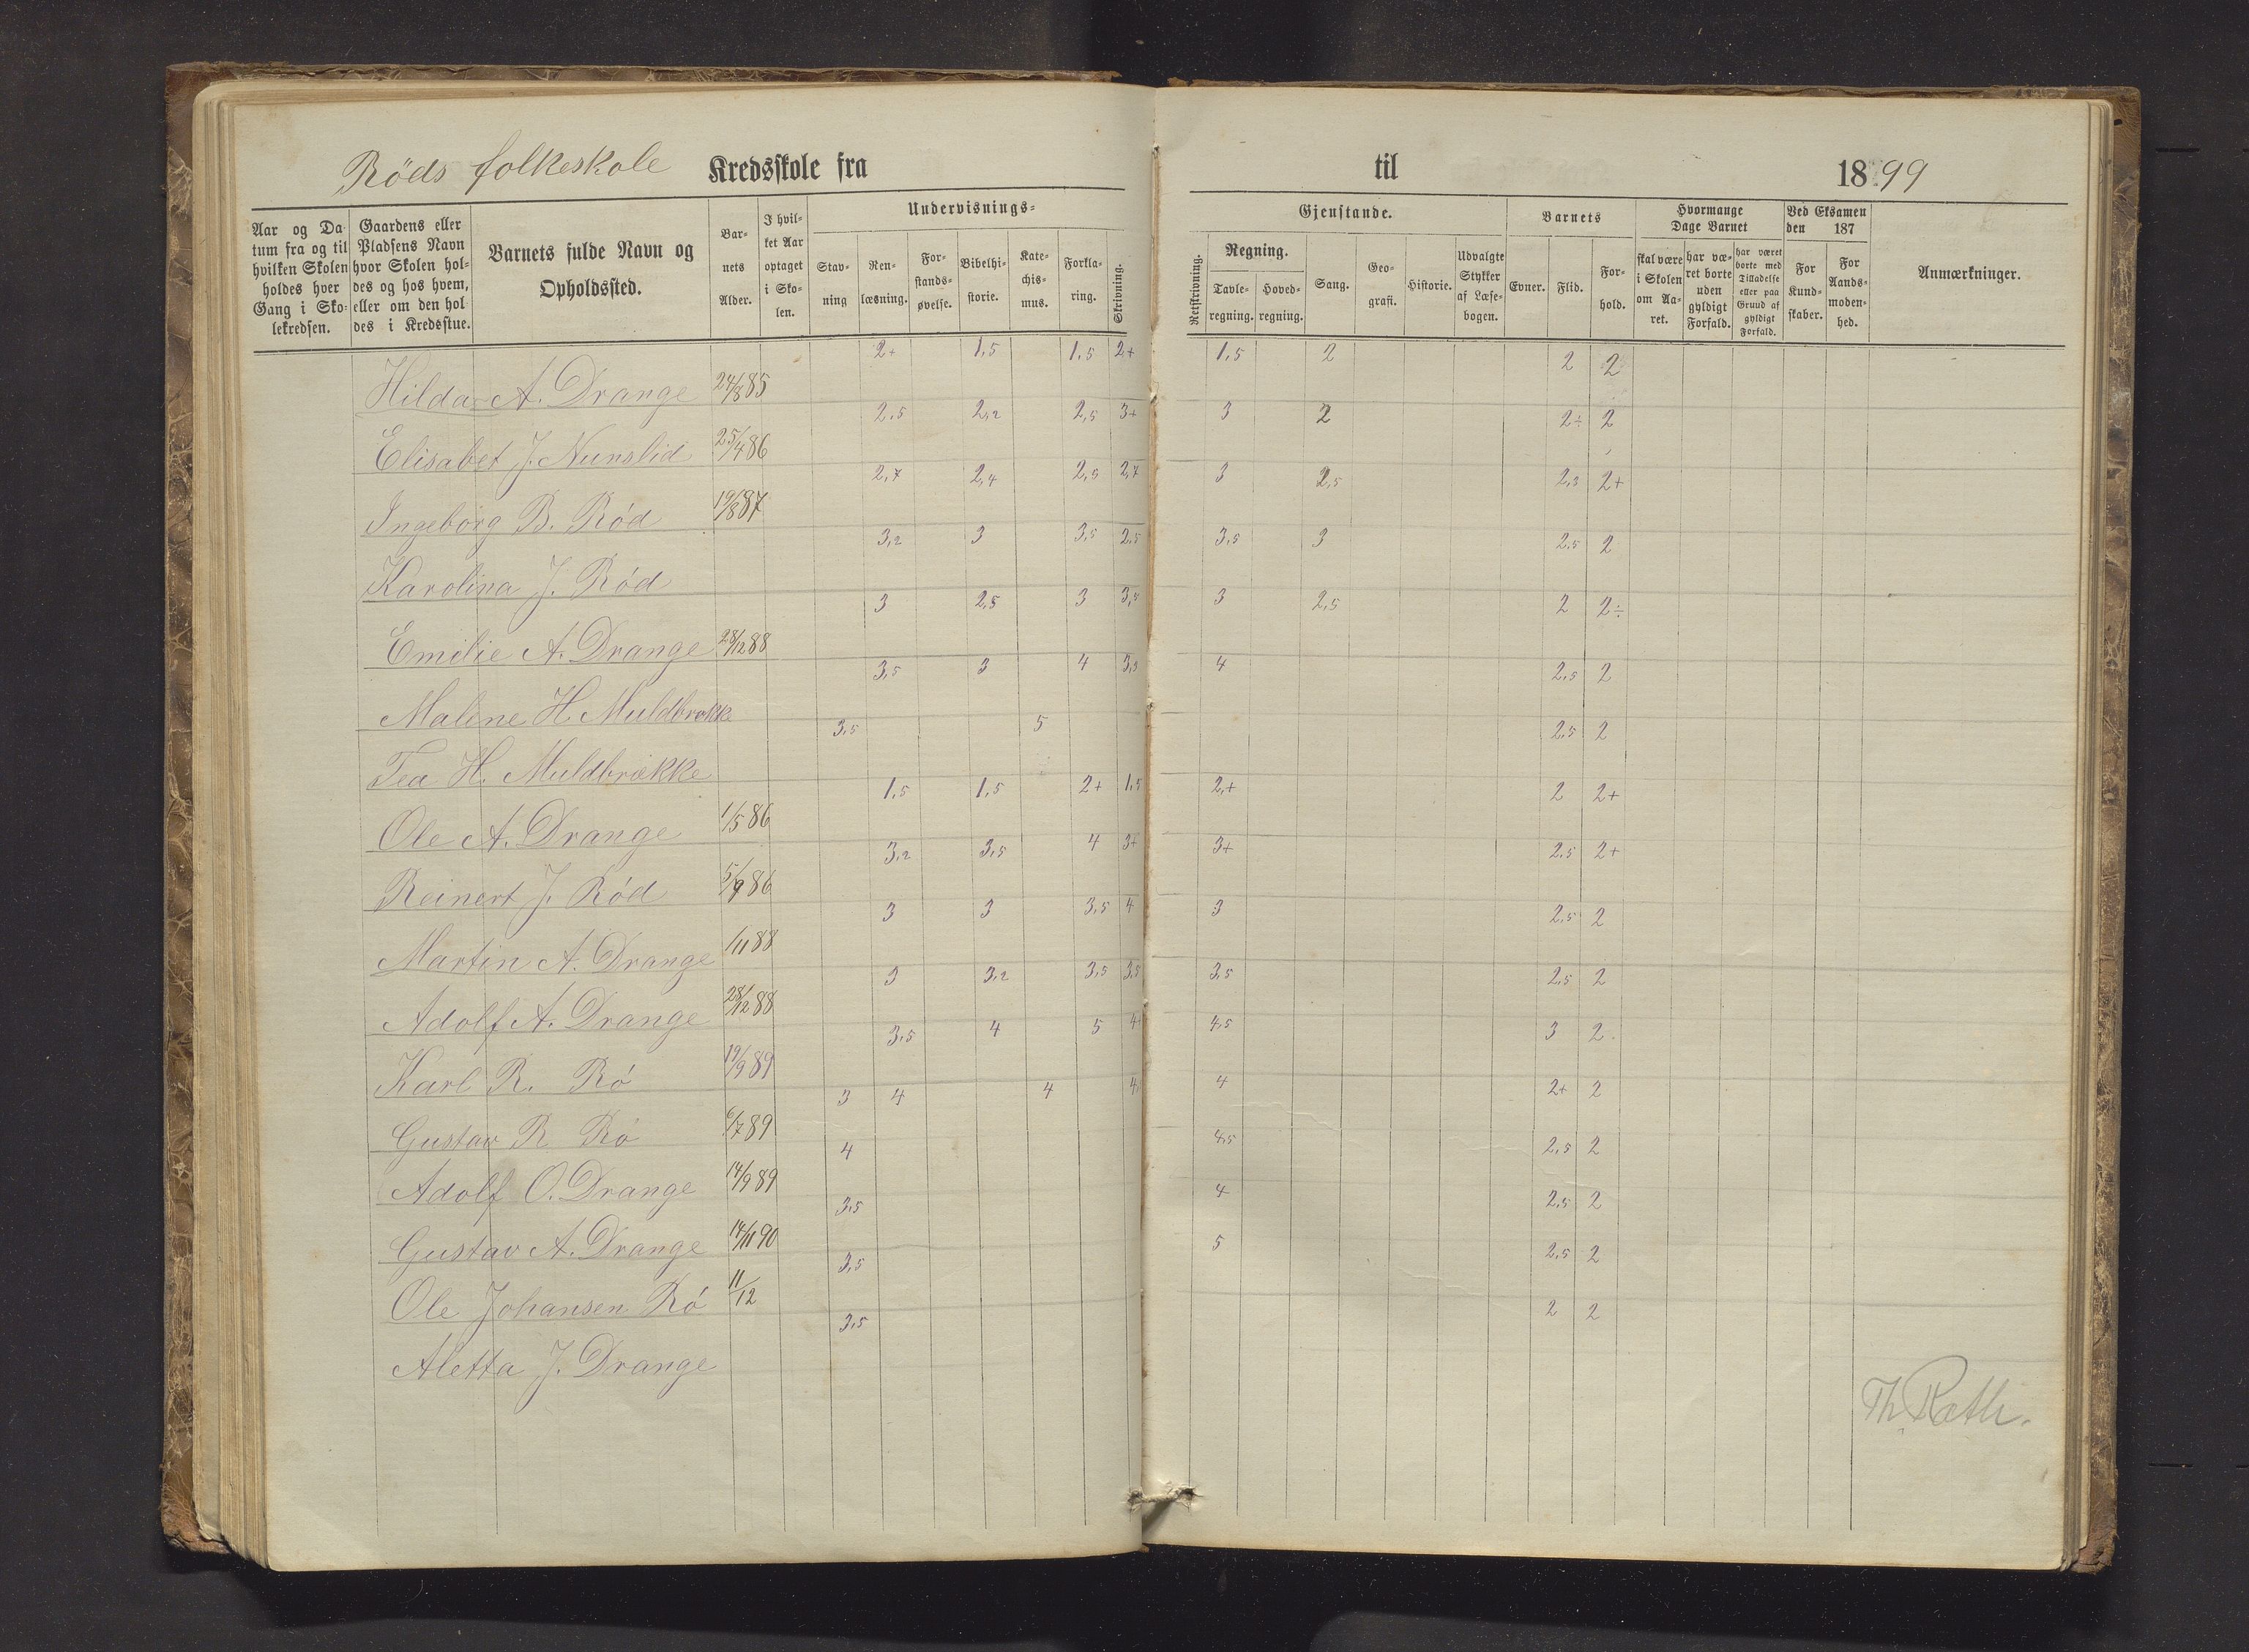 Röds folkeskole Kredsskole fra til 1899
Aar og Da-
tum fra og til
hvilken Skolen
holdes hver
Gang i Sko-
lekredsen.
Gaardens eller
Pladsens Navn
hvor Skolen hol-
des og hos hvem,
eller om den hol-
des i Kredsstue.
Barnets fulde Navn og
Opholdssted.
Bar-
nets
Alder.
I hvil-
ket Aar
optaget
i Sko-
len.
Undervisnings-
Stav-
ning
Ren-
læsning.
For-
stands-
øvelse.
Bibelhi-
storie.
Kate-
chis-
mus.
Forkla-
ring.
Skrivning.
Gjenstande.
Retskrivning.
Regning.
Tavle-
regning.
Hoved-
regning.
Sang.
Geo-
grafi.
Historie.
Udvalgte
Stykker
af Læse-
bogen.
Barnets
Evner.
Flid.
For-
hold.
Hvormange
Dage Barnet
skal være
i Skolen
om Aa-
ret.
har væ-
ret borte
uden
gyldigt
Forfald.
har været
borte med
Tilladelse
eller paa
Grund af
gyldigt
Forfald.
Ved Eksamen
den 187
For
Kund-
skaber.
For
Aands-
moden-
hed.
Anmærkninger.
Hilda A. Drange 24/8 85 2+ 1,5 1,5 2+ 1,5 2 2 2
Elisabet J. Nunslid 25/4 86 2,5 2,2 2,5 3+ 3 2 2÷ 2
Ingeborg B. Rød 19/8 87 2,7 2,4 2,5 2,7 3 2,5 2,3 2+
Karolina J. Rød 3,2 3 3,5 2,5 3,5 3 2,5 2
Emilie A. Drange 28/12 88 3 2,5 3 3,5 3 2,5 2 2÷
Malene H. Muldbrekke 3,5 3 4 3,5 4 2,5 2
Tea H. Muldbrekke 3,5 5 2,5 2
Ole A. Drange 1/5 86 1,5 1,5 2+ 1,5 2+ 2 2+
Reinert J. Rød 5/9 86 3,2 3,5 4 3+ 3+ 2,5 2+
Martin A. Drange /11 88 3 3 3,5 4 3 2,5 2
Adolf A. Drange 28/12 88 3 3,2 3,5 3,5 3,5 2,5 2
Karl R. Rø 19/9 89 3,5 4 5 4 4,5 3 2
Gustav R Rø 6/7 89 3 4 4 4 4 2+ 2
Adolf O. Drange 14/9 89 4 4,5 2,5 2
Gustav A. Drange 14/11 90 3,5 4 2,5 2
Ole Johansen Rø 11/12 3,5 5 2,5 2
Aletta J. Drange 3,5 2 2
Th. Rath.